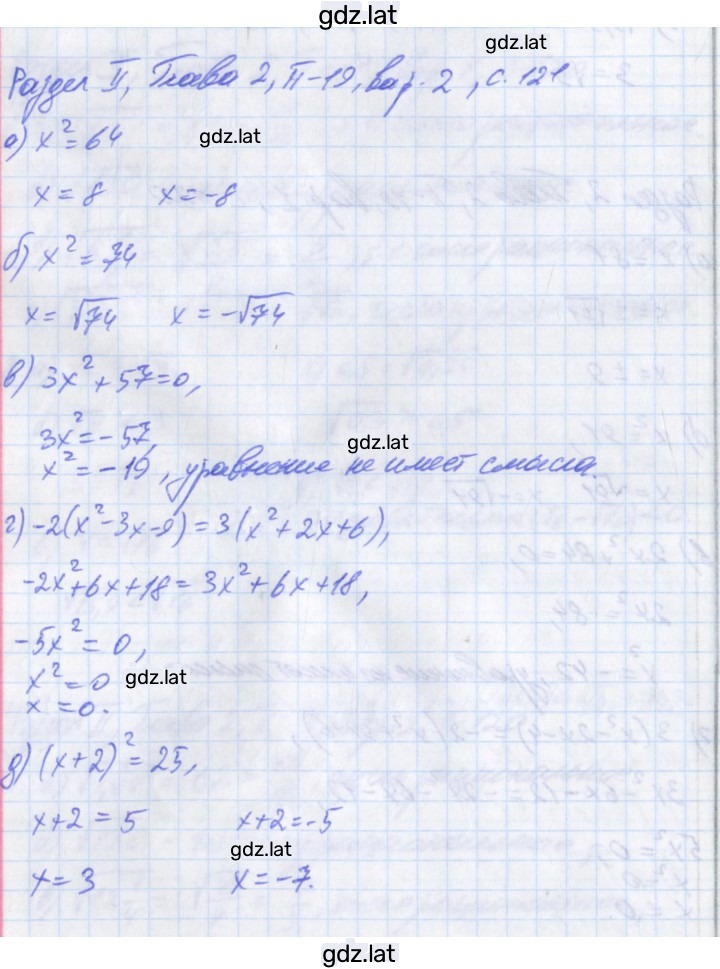 gdz.lat
gdz.lat
Раздел II, Глава 2, П-19, вар. 2, с. 121
а) x² = 64
gdz.lat
x = 8 x = -8
б) x² = 74
x = √74 x = -√74
в) 3x² + 57 = 0,
3x² = -57,
gdz.lat
x² = -19, уравнение не имеет смысла.
г) -2(x² - 3x - 9) = 3(x² + 2x + 6),
-2x² + 6x + 18 = 3x² + 6x + 18,
-5x² = 0,
x² = 0
gdz.lat
x = 0.
д) (x + 2)² = 25,
x + 2 = 5 x + 2 = -5
gdz.lat
x = 3 x = -7.
gdz.lat